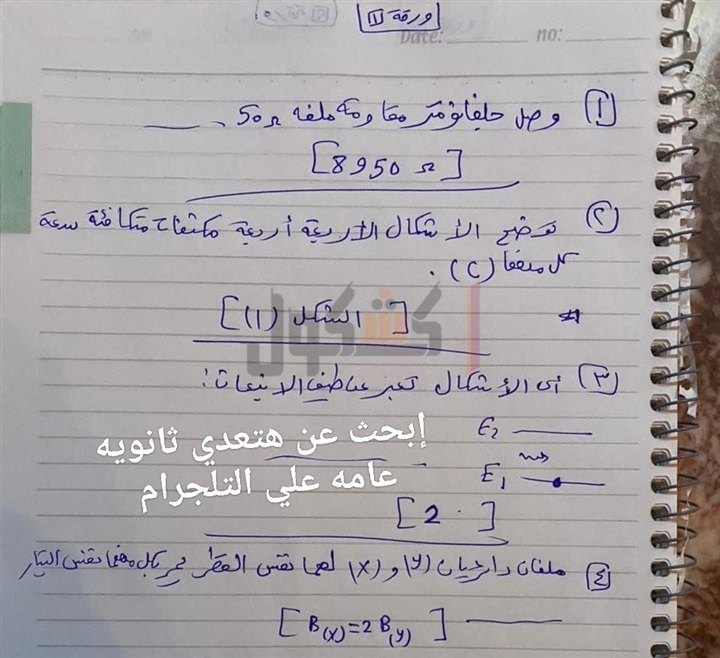 ورقة [11]
Date: no:
(1) وصل جلفانومتر مقاومة ملفه 50 Ω، ــــ
[8950 Ω]
(2) توضح الأشكال الأربعة أربعة مكثفات متكافئة سعة
كل منها (C).
[الشكل (1)]
كشكول
(3) أى الأشكال تعبر عن طيف الانبعاث:
E2
إبحث عن هتعدي ثانويه
E1
عامه علي التلجرام
[2]
(4) ملفان دائريان (y) و (x) لهما نفس القطر يمر بكل منهما نفس التيار
[B(x)=2 B(y)]